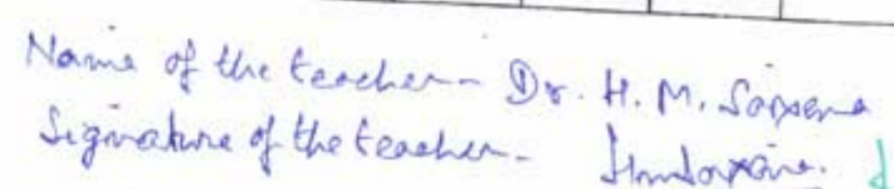 Name of the teacher - Dr. H. M. Saxena
Signature of the teacher - HmSaxena.